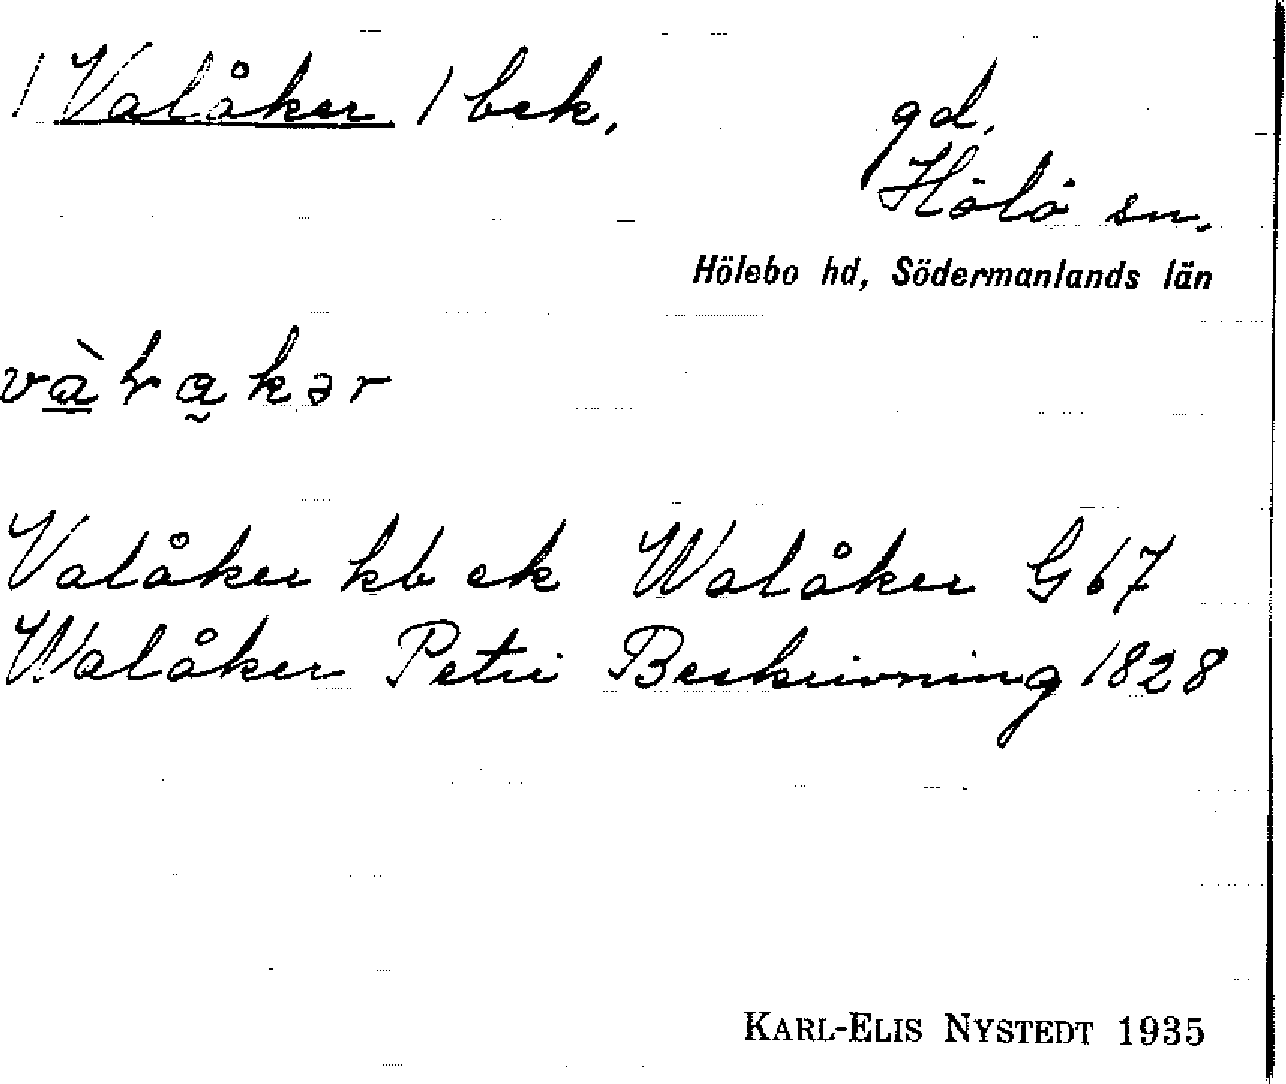 / Valåker / bek. gd.
Hölö sn.
Hölebo hd, Södermanlands län
Valåker kb ek Walåker G 67
Walåker Petri Beskrivning 1828
KARL-ELIS NYSTEDT 1935